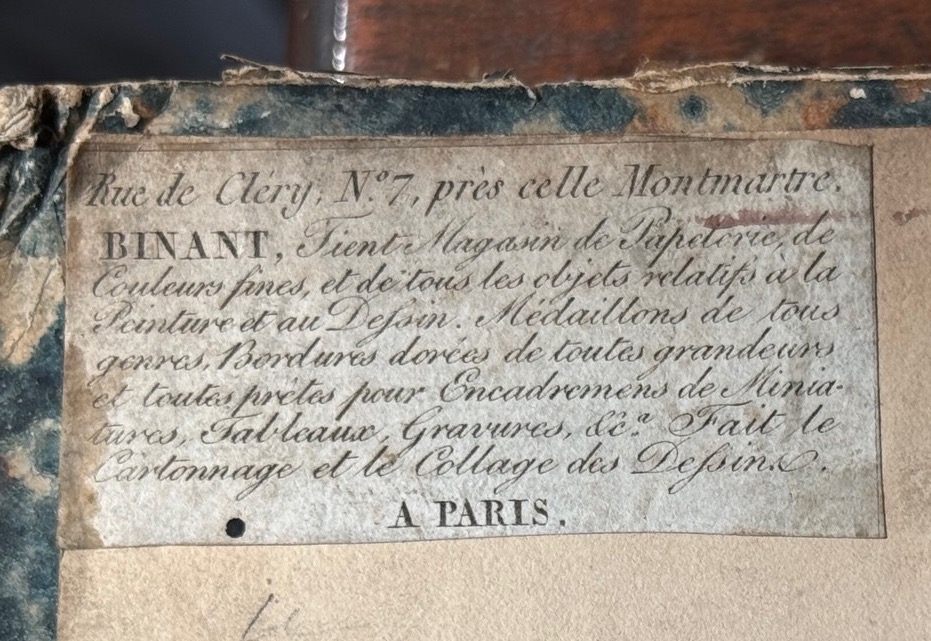 Rue de Cléry, N.º 7, près celle Montmartre.
BINANT, Tient Magasin de Papeterie, de
Couleurs fines, et de tous les objets relatifs à la
Peinture et au Deſsin. Médaillons de tous
genres, Bordures dorées de toutes grandeurs
et toutes prêtes pour Encadremens de Minia-
tures, Tableaux, Gravures, &c.ª Fait le
Cartonnage et le Collage des Deſsins.
A PARIS.